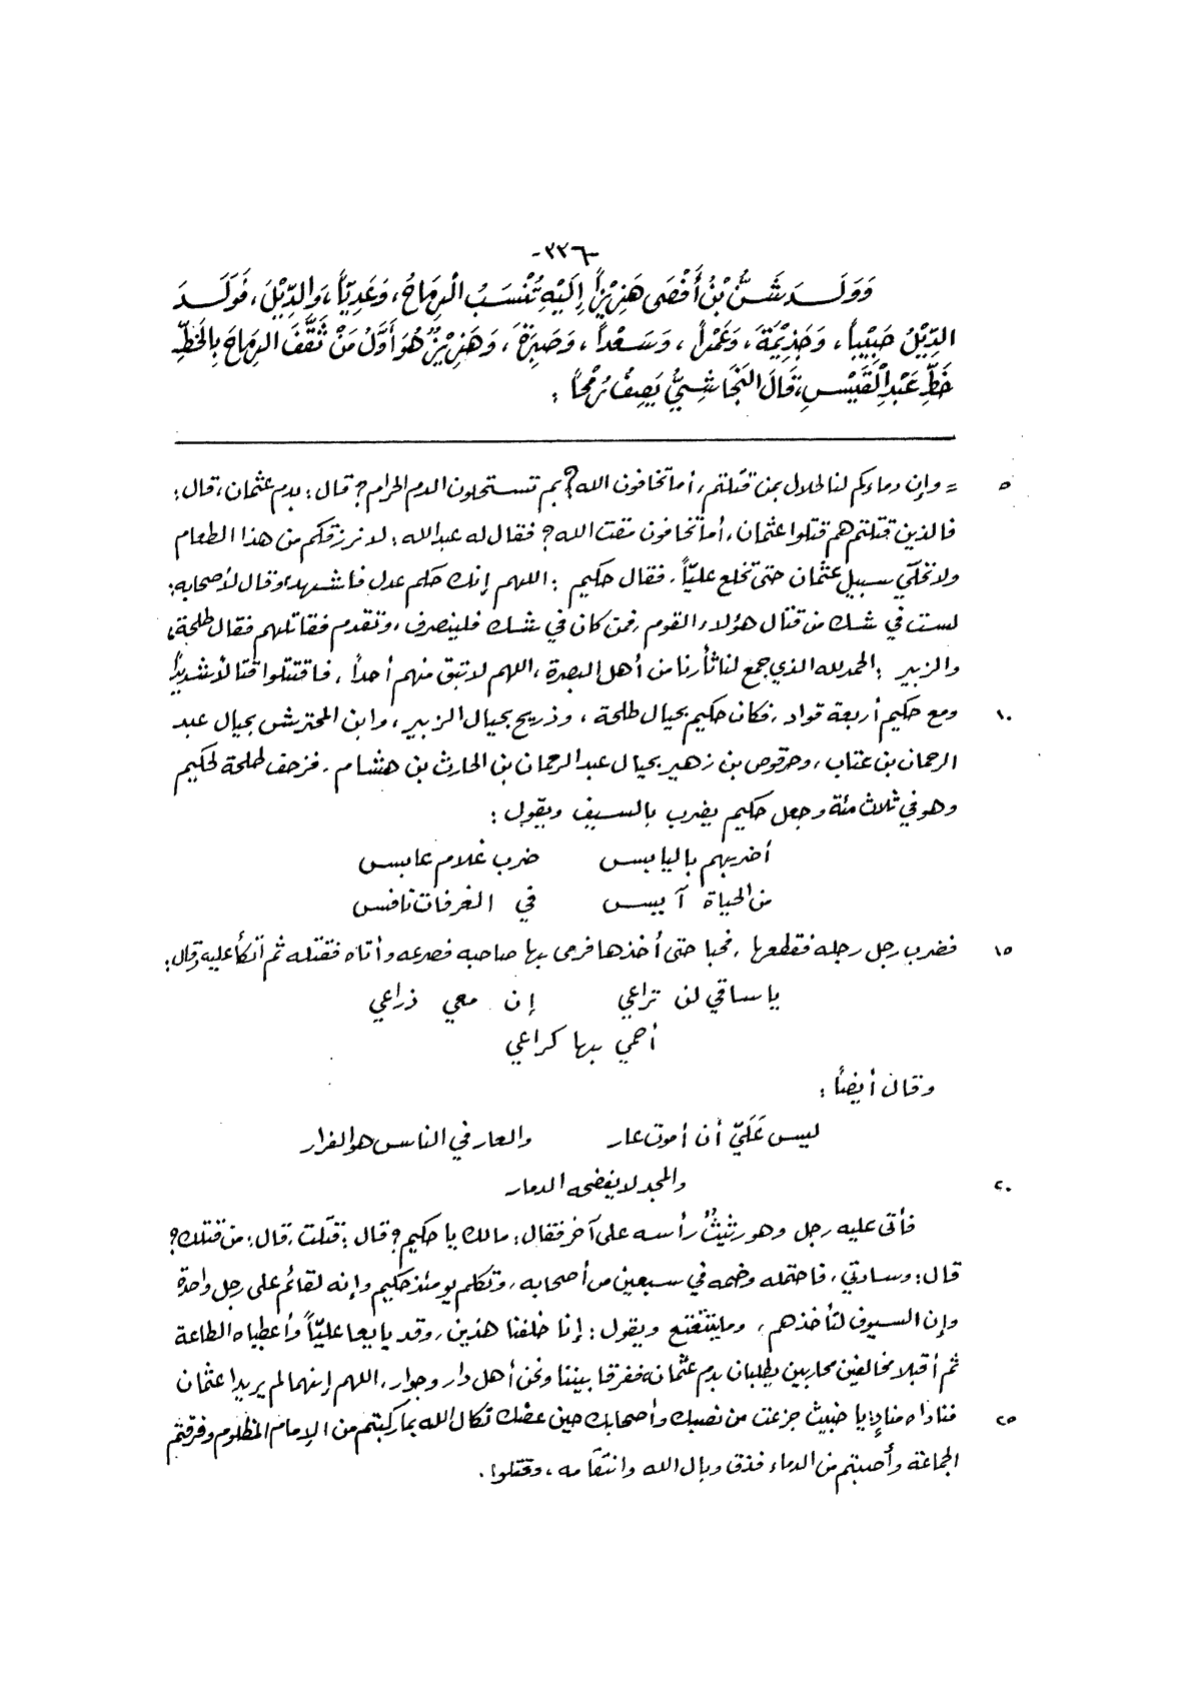 -٣٣٦-
وَوَلَـدَ شَنُّ بْنُ أَفْصَى هَزِيْزاً إِلَيْهِ تُنْسَبُ الْرِمَاحُ، وَعَدِيّاً، وَالدِّيْلَ، فَوَلَـدَ
الدِّيْلُ حَبِيْباً، وَجَذِيْمَةَ، وَعَمْراً، وَسَعْداً، وَصَبِرَةَ، وَهَزِيْزٌ هُوَ أَوَّلُ مَنْ ثَقَّفَ الرِمَاحَ بِالخَطِّ
خَطِّ عَبْدِ الْقَيْسِ، قَالَ النَجَاشِيُّ يَصِفُ رُمْحاً :
= وإن دماءكم لنا لحلال بمن قتلتم، أما تخافون الله؟ بم تستحلون الدم الحرام؟ قال: بدم عثمان، قال: ٥
فالذين قتلتم هم قتلوا عثمان، أما تخافون مقت الله؟ فقال له عبدالله: لا نرزقكم من هذا الطعام
ولا نخلّي سبيل عثمان حتى تخلع عليّاً، فقال حكيم : اللهم إنك حكم عدل فاشهد، وقال لأصحابه:
لست في شك من قتال هؤلاء القوم، فمن كان في شك فلينصرف، وتقدم فقاتلهم فقال طلحة،
والزبير : الحمد لله الذي جمع لنا ثأرنا من أهل البصرة، اللهم لا تبق منهم أحداً، فاقتتلوا قتالاً شديداً
ومع حكيم أربعة قواد، فكان حكيم بحيال طلحة، وذريح بحيال الزبير، وابن المحترش بحيال عبد ١٠
الرحمان بن عتاب، وحرقوص بن زهير بحيال عبدالرحمان بن الحارث بن هشام، فزحف طلحة لحكيم
وهو في ثلاث مئة وجعل حكيم يضرب بالسيف ويقول :
أضربهم باليابس ضرب غلام عابس
من الحياة آيس في الغرفات نافس
فضرب رجل رجله فقطعها، فحبا حتى أخذها فرمى بها صاحبه فصرعه وأتاه فقتله ثم اتكأ عليه وقال: ١٥
يا ساقي لن تراعي إن معي ذراعي
أحمي بها كراعي
وقال أيضاً :
ليس عَلَيّ أن أموت عار والعار في الناس هو الفرار
والمجد لا يفضحه الدمار ٢٠
فأتى عليه رجل وهو رثيثٌ رأسه على آخر فقال: مالك يا حكيم؟ قال: قتلت، قال: من قتلك؟
قال: وسادتي، فاحتمله وضمه في سبعين من أصحابه، وتكلم يومئذ حكيم وإنه لقائم على رجل واحدة
وإن السيوف لتأخذهم، وما يتتعتع ويقول : إنا خلفنا هذين، وقد بايعا عليّاً وأعطياه الطاعة
ثم أقبلا مخالفين محاربين يطلبان بدم عثمان، ففرقا بيننا ونحن أهل دار وجوار، اللهم إنهما لم يريدا عثمان
فناداه منادٍ: يا خبيث جزعت من نصبك وأصحابك حين عضك نكال الله بما ركبتم من الإمام المظلوم وفرقتم ٢٥
الجماعة وأصبتم من الدماء فذق وبال الله وانتقامه، وقتلوا.